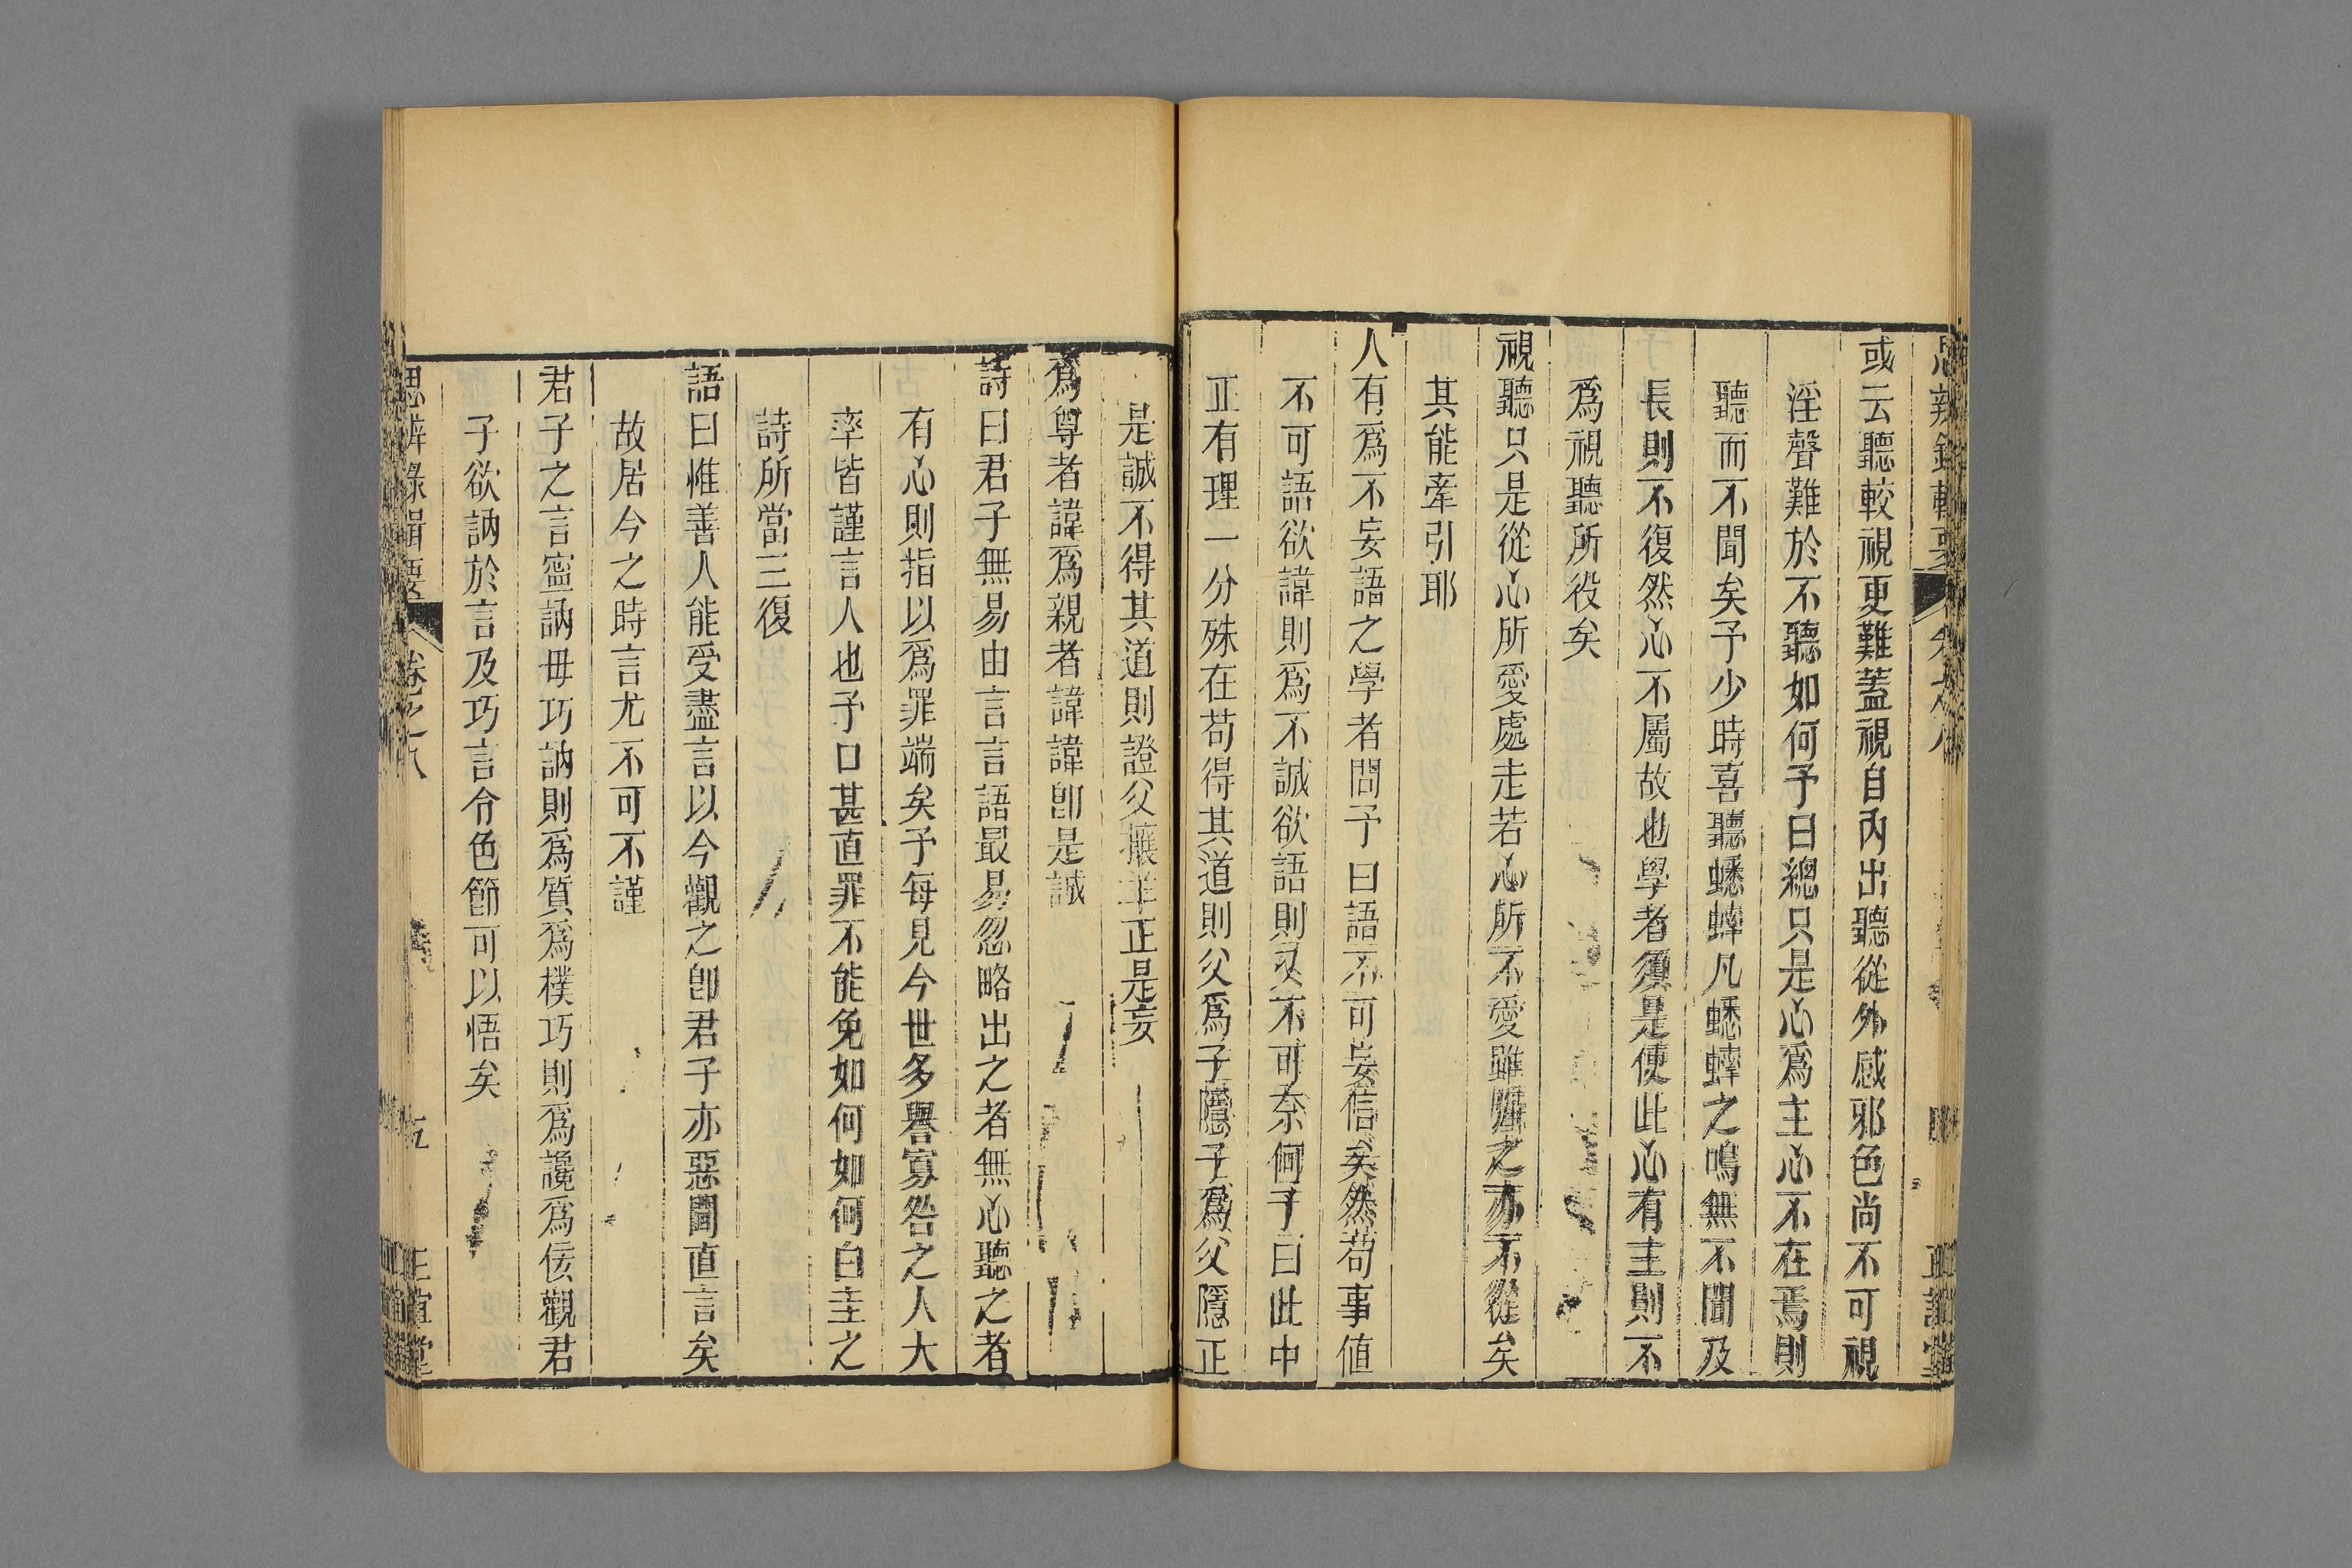 或云聽較視更難蓋視自內出聽從外感邪色尚不可視
淫聲難於不聽如何予曰總只是心爲主心不在焉則
聽而不聞矣予少時喜聽蟋蟀凡蟋蟀之鳴無不聞及
長則不復然心不屬故也學者須是使此心有主則不
爲視聽所役矣
視聽只是從心所愛處走若心所不愛雖驅之亦不從矣
其能牽引耶
人有爲不妄語之學者問予曰語不可妄信矣然苟事值
不可語欲諱則爲不誠欲語則又不可奈何予曰此中
正有理一分殊在苟得其道則父爲子隱子爲父隱正
是誠不得其道則證父攘羊正是妄
爲尊者諱爲親者諱諱卽是誠
詩曰君子無易由言言語最易忽略出之者無心聽之者
有心則指以爲罪端矣予每見今世多譽寡咎之人大
率皆謹言人也予口甚直罪不能免如何如何白圭之
詩所當三復
語曰惟善人能受盡言以今觀之卽君子亦惡聞直言矣
故居今之時言尤不可不謹
君子之言寧訥毋巧訥則爲質爲樸巧則爲讒爲佞觀君
子欲訥於言及巧言令色節可以悟矣
思辨錄輯要
卷之八
五
正誼堂